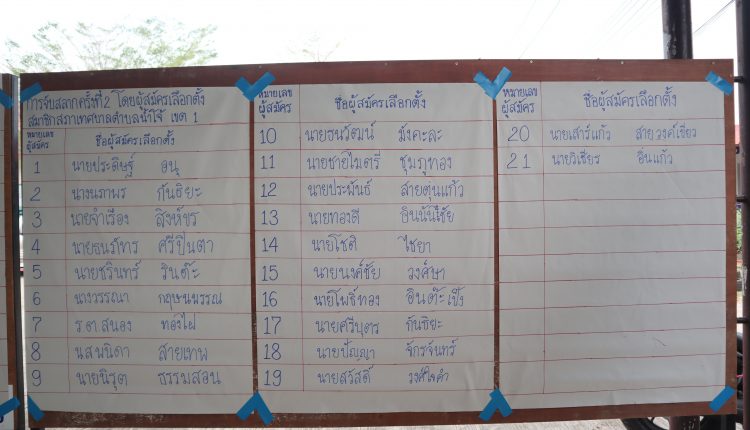 การจับสลากครั้งที่ 2 โดยผู้สมัครเลือกตั้ง
สมาชิกสภาเทศบาลตำบลน้ำโจ้ เขต 1
หมายเลขผู้สมัคร ชื่อผู้สมัครเลือกตั้ง
1 นายประดิษฐ์ อนุ
2 นางนภาพร กันธิยะ
3 นายจำเรือง สิงห์ขร
4 นายธนภัทร ศรีปินตา
5 นายชรินทร์ รินต๊ะ
6 นางวรรณา กฤษณพรรณ
7 ร.ต.สนอง ทองไผ่
8 น.ส.พนิดา สายเทพ
9 นายนิรุต ธรรมสอน
หมายเลขผู้สมัคร ชื่อผู้สมัครเลือกตั้ง
10 นายธนวัฒน์ มังคะละ
11 นายชายไมตรี ชุมภูทอง
12 นายประพันธ์ สายตุนแก้ว
13 นายทองสี อินนันไชย
14 นายโชติ ไชยา
15 นายนงค์ชัย วงค์ษา
16 นายโพธิ์ทอง อินต๊ะเป็ง
17 นายศรีบุตร กันธิยะ
18 นายปัญญา จักรจันทร์
19 นายสวัสดิ์ วงศ์ใจคำ
หมายเลขผู้สมัคร ชื่อผู้สมัครเลือกตั้ง
20 นายเสาร์แก้ว สายวงค์เขียว
21 นายวิเชียร อิ่นแก้ว